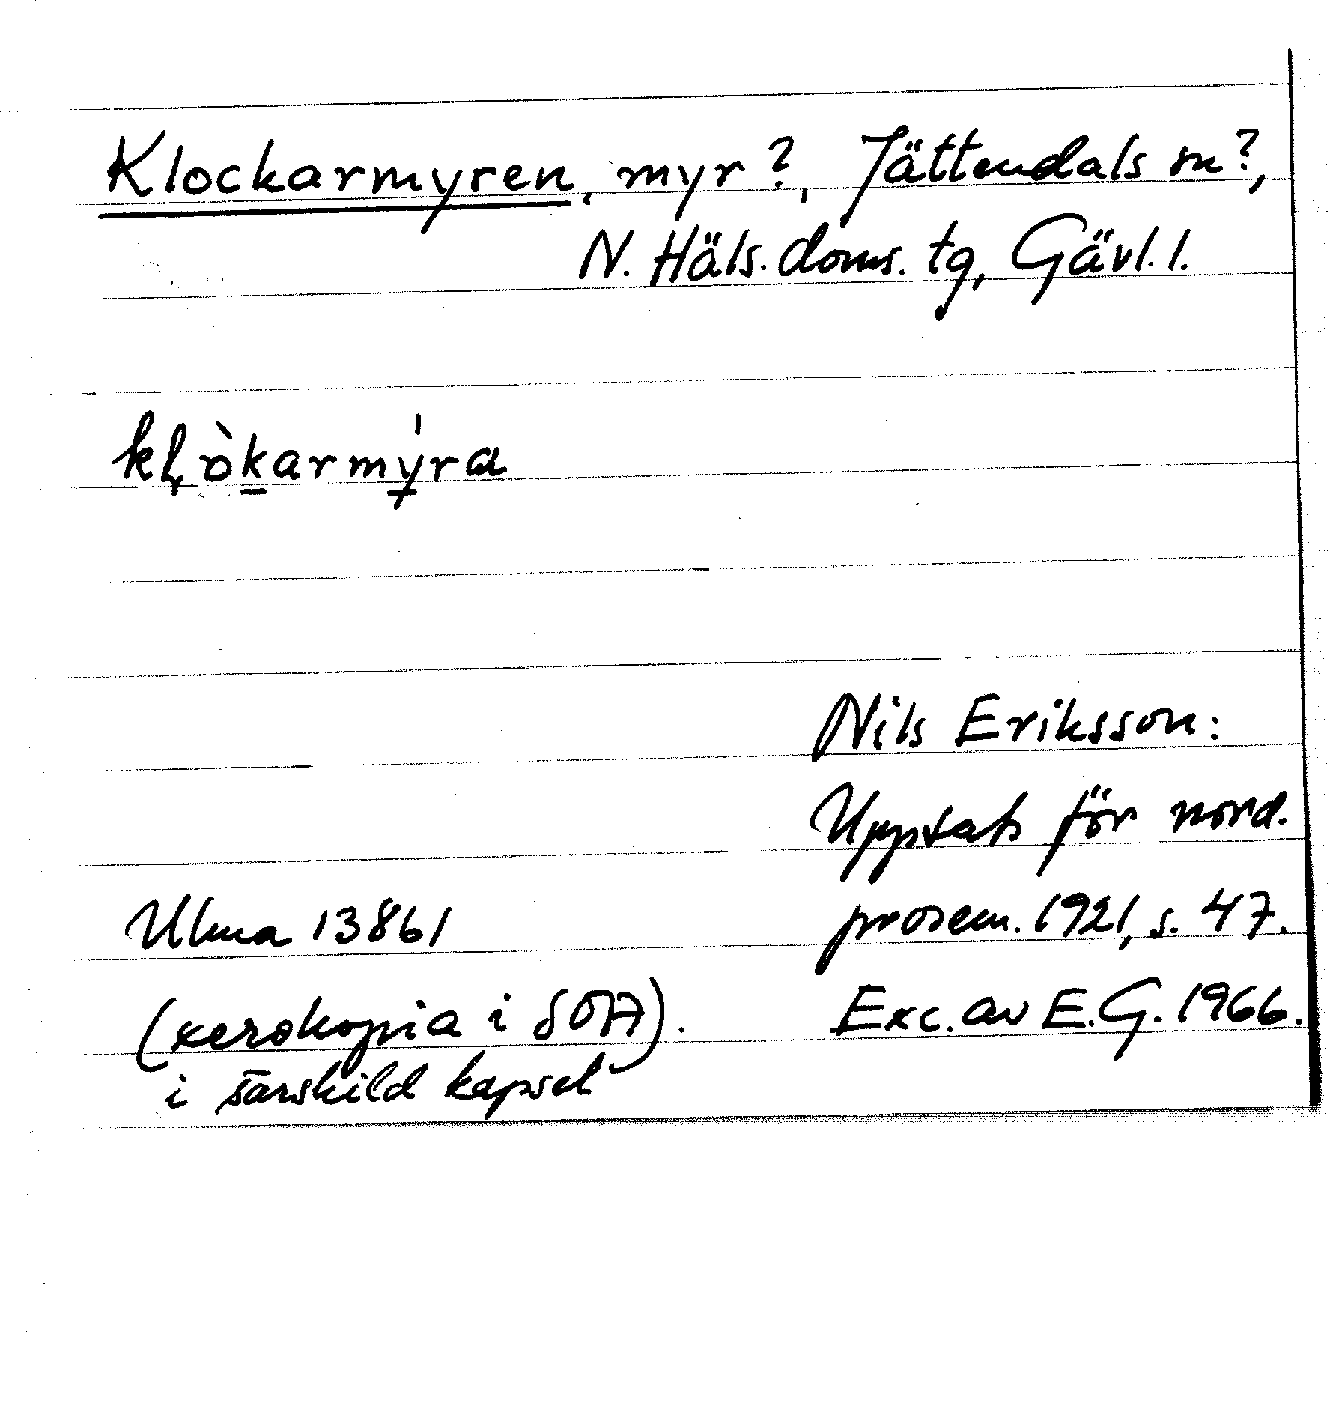 Klockarmyren, myr?, Jättendals sn?,
N. Häls. doms. tg, Gävl. l.
kḷòkarmýra
Nils Eriksson:
Uppsats för nord.
Ulma 13861 prosem. 1921, s. 47.
(xerokopia i SOA). Exc. av E.G. 1966.
i särskild kapsel